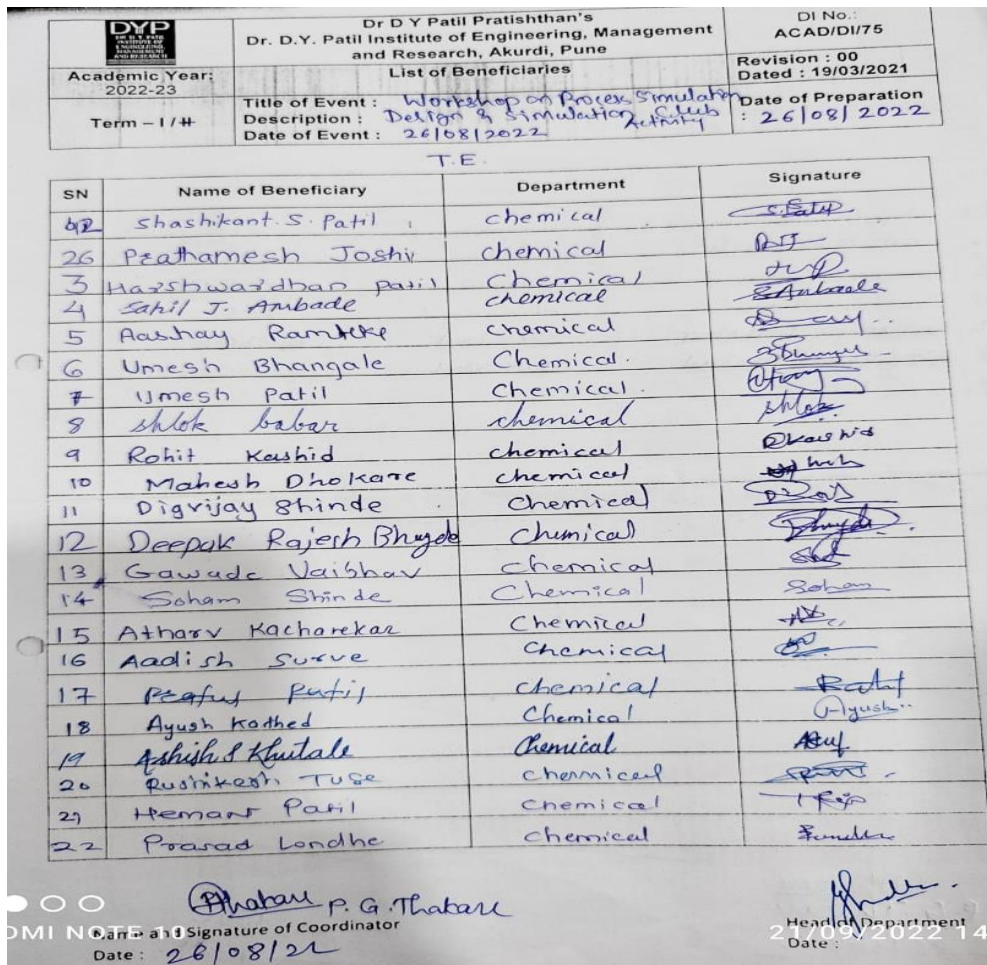 DYP
DR D Y PATIL
INSTITUTE OF
ENGINEERING,
MANAGEMENT
AND RESEARCH
Dr D Y Patil Pratishthan's
Dr. D.Y. Patil Institute of Engineering, Management
and Research, Akurdi, Pune
DI No.:
ACAD/DI/75
Academic Year:
2022-23
List of Beneficiaries
Revision : 00
Dated : 19/03/2021
Term – I / II
Title of Event : Workshop on Process Simulation
Description : Design & Simulation Club Activity
Date of Event : 26/08/2022
Date of Preparation
: 26/08/2022
T.E.
SN Name of Beneficiary Department Signature
Shashikant. S. Patil chemical S. Patil
26 Prathamesh Joshi chemical
3 Harshwardhan patil Chemical
4 Sahil J. Ambade chemical SAmbade
5 Aashay Ramteke chemical
6 Umesh Bhangale Chemical.
7 Umesh Patil Chemical.
8 shlok babar chemical shlok
9 Rohit Kashid chemical Rkashid
10 Mahesh Dhokare chemical
11 Digvijay Shinde Chemical
12 Deepak Rajesh Bhugde Chemical
13 Gawade Vaibhav chemical
14 Soham Shinde Chemical Soham
15 Atharv Kacharekar Chemical
16 Aadish Surve Chemical
17 Praful Patil chemical
18 Ayush Kothed Chemical Ayush
19 Ashish S Khutale Chemical
20 Rushikesh Tuse chemical
21 Hemant Patil chemical
22 Prasad Londhe chemical
PThakare P. G. Thakare
Name and Signature of Coordinator
Date : 26/08/22
Head of Department
Date :
DMI NOTE 10
21/09/2022 14